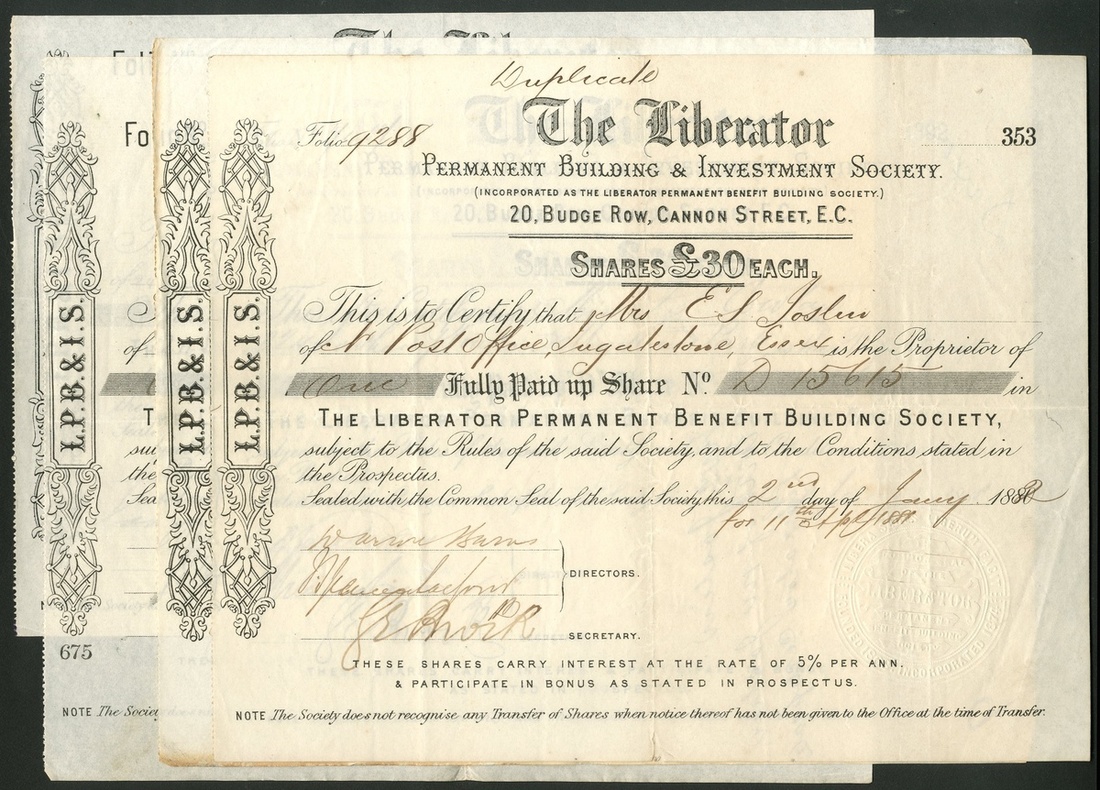 Duplicate
The Liberator
Folio 9288
353
PERMANENT BUILDING & INVESTMENT SOCIETY.
(INCORPORATED AS THE LIBERATOR PERMANENT BENEFIT BUILDING SOCIETY.)
20, BUDGE ROW, CANNON STREET, E.C.
SHARES £30 EACH.
This is to Certify that Mrs E S Joslin
of Post Office, Ingatestone, Essex is the Proprietor of
One Fully Paid up Share No. D 15615 in
THE LIBERATOR PERMANENT BENEFIT BUILDING SOCIETY,
subject to the Rules of the said Society, and to the Conditions, stated in
the Prospectus.
Sealed with the Common Seal of the said Society this 2nd day of Jany 1882
for 11th
DIRECTORS.
SECRETARY.
THESE SHARES CARRY INTEREST AT THE RATE OF 5% PER ANN.
& PARTICIPATE IN BONUS AS STATED IN PROSPECTUS.
NOTE The Society does not recognise any Transfer of Shares when notice thereof has not been given to the Office at the time of Transfer.
L.P.B. & I.S.
L.P.B. & I.S.
L.P.B. & I.S.
Fo
of
T
the
Sea
675
NOTE The Society